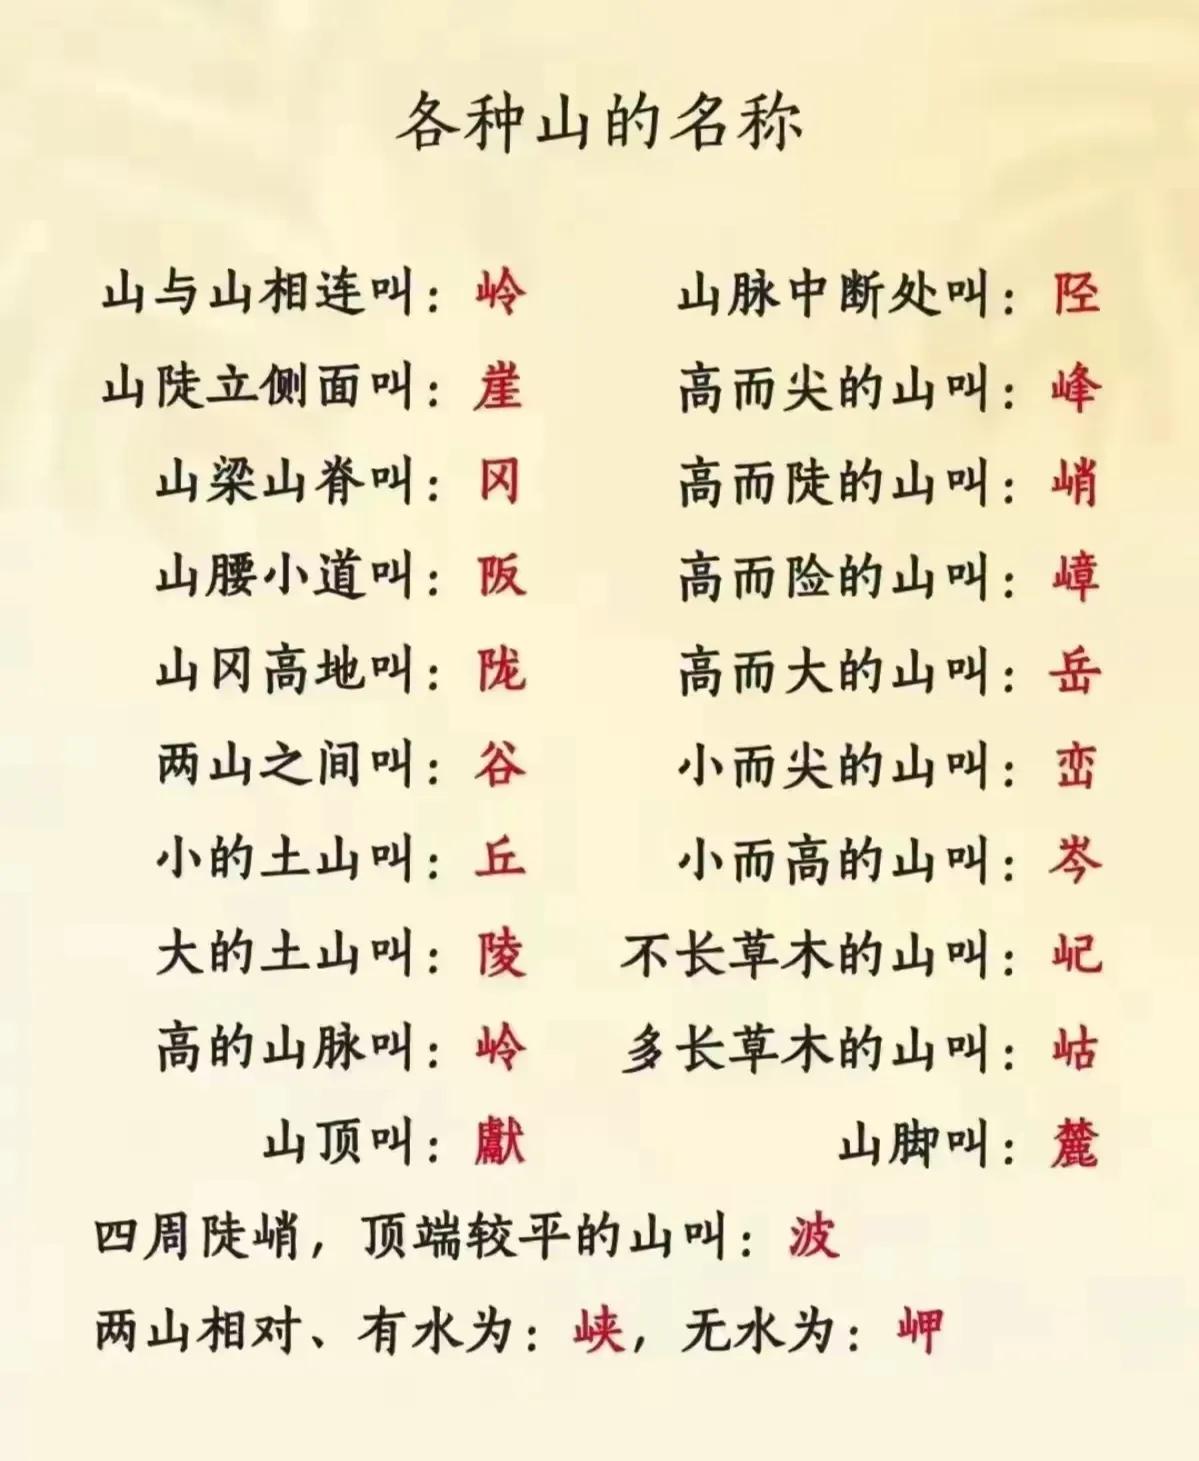 各种山的名称
山与山相连叫：岭 山脉中断处叫：陉
山陡立侧面叫：崖 高而尖的山叫：峰
山梁山脊叫：冈 高而陡的山叫：峭
山腰小道叫：阪 高而险的山叫：嶂
山冈高地叫：陇 高而大的山叫：岳
两山之间叫：谷 小而尖的山叫：峦
小的土山叫：丘 小而高的山叫：岑
大的土山叫：陵 不长草木的山叫：屺
高的山脉叫：岭 多长草木的山叫：岵
山顶叫：巘 山脚叫：麓
四周陡峭，顶端较平的山叫：波
两山相对、有水为：峡，无水为：岬